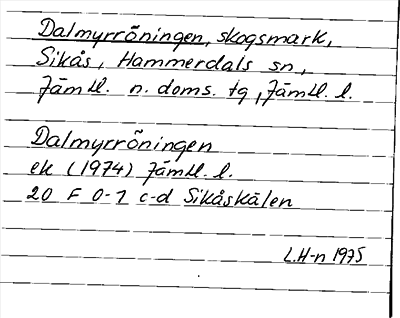 Dalmyrröningen, skogsmark,
Sikås, Hammerdals sn,
Jämtl. n. doms. tg, Jämtl. l.
Dalmyrröningen
ek (1974) Jämtl. l.
20 F 0-1 c-d Sikåskälen
L.H-n 1975